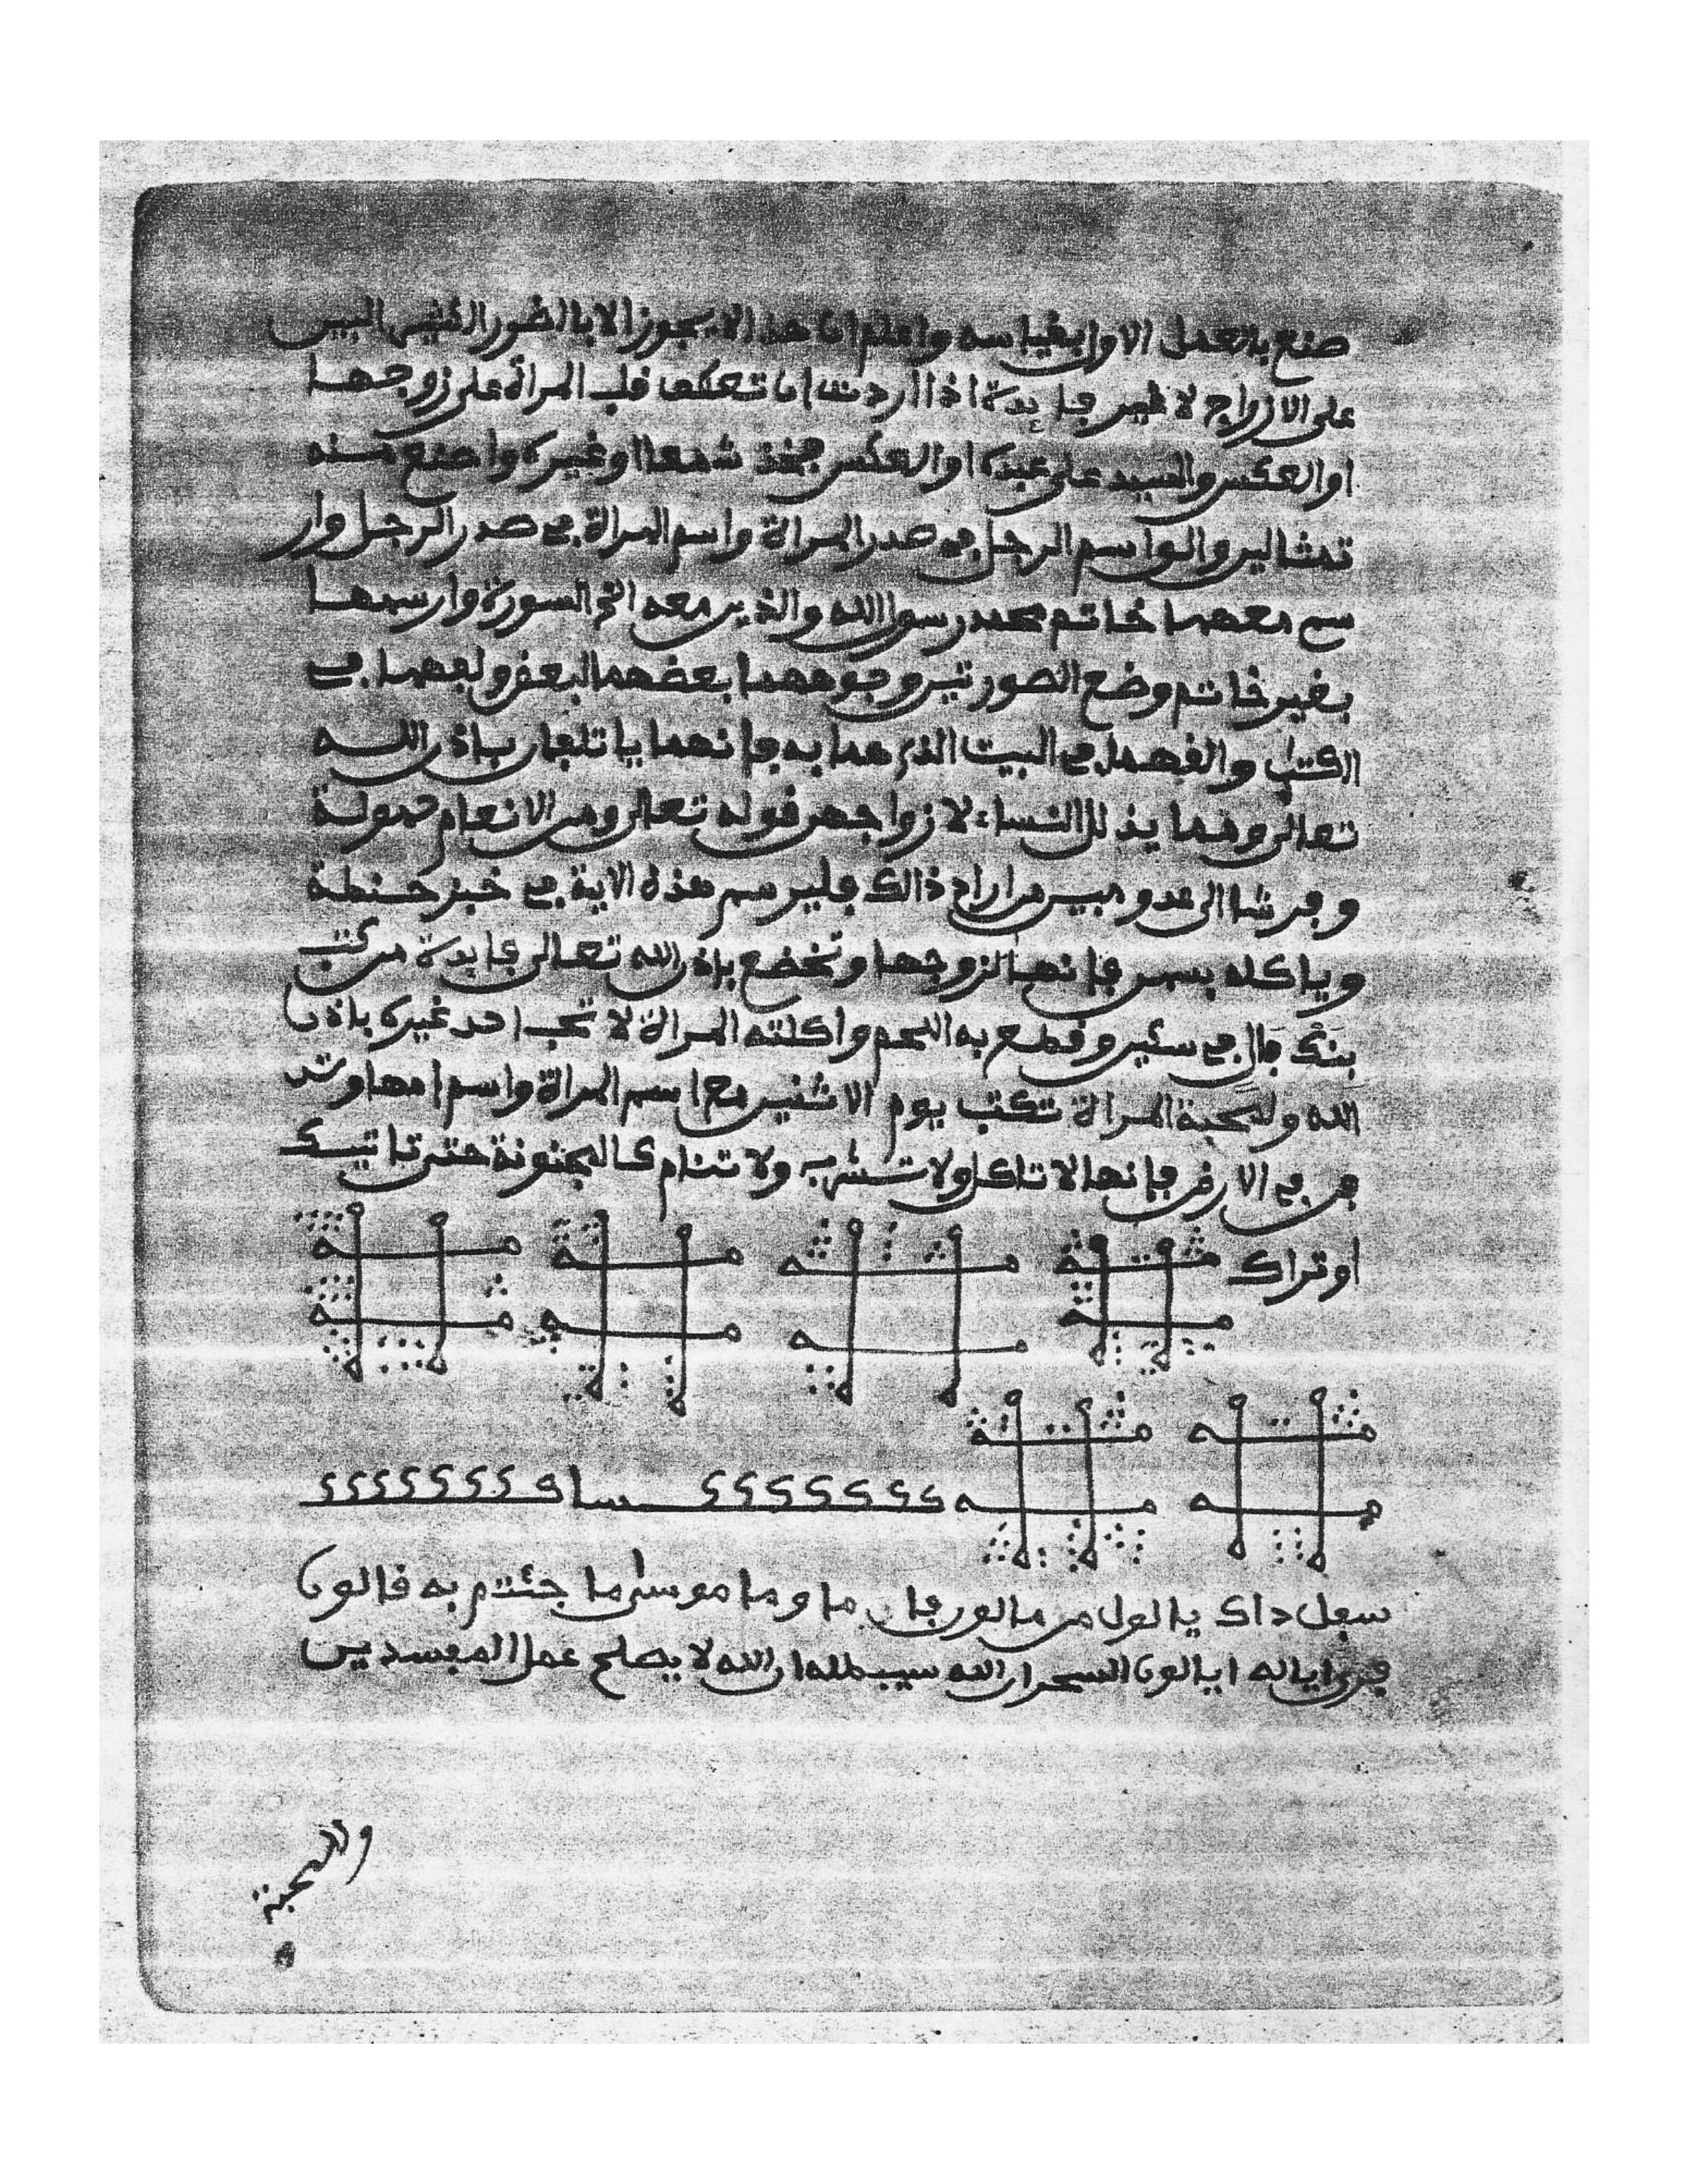 صنع بالعمل الاول بقياسه واعلم ان هذا لا يجوز الا بالضور
على الازواج لا غير فايدة اذا اردت ان تعكف قلب المرأة على زوجها
او العكس والسيد على عبده او العكس فخذ شمعا او غيره واصنع منه
تمثالين والواسم الرجل في صدر المراة واسم المراة في صدر الرجل وار
سم معهما خاتم محمد رسول الله والذين معه الخ السورة وارسمها
بغير خاتم وضع الصورتين وجوههما بعضهما لبعض ولفهما في
الكتاب والفهما في البيت الذي هما به فانهما ياتلفان باذن الله
تعالى ومما يذلل النساء لازواجهن قوله تعالى ومن الانعام حمولة
وفرشا الى عدو مبين من اراد ذالك فليرسم هذه الاية في خبز حنطة
وياكله بسمن فانها لزوجها وتخضع باذن الله تعالى فايدة من كتب
بنكَ فال في سكين وقطع به اللحم واكلته المراة لا تحب احد غيره باذن
الله ولمحبة المراة تكتب يوم الاثنين مع اسم المراة واسم امها وتد
فن في الارض فانها لا تاكل ولا تشرب ولا تنام كالمجنونة حتى تاتيك
او تراك
سعل داك يالول من مالور فا ما وما موسى ما جئتم به قالون
فرى اياله ايالون السحر ان الله سيبطله ان الله لا يصلح عمل المفسدين
وللمحبة